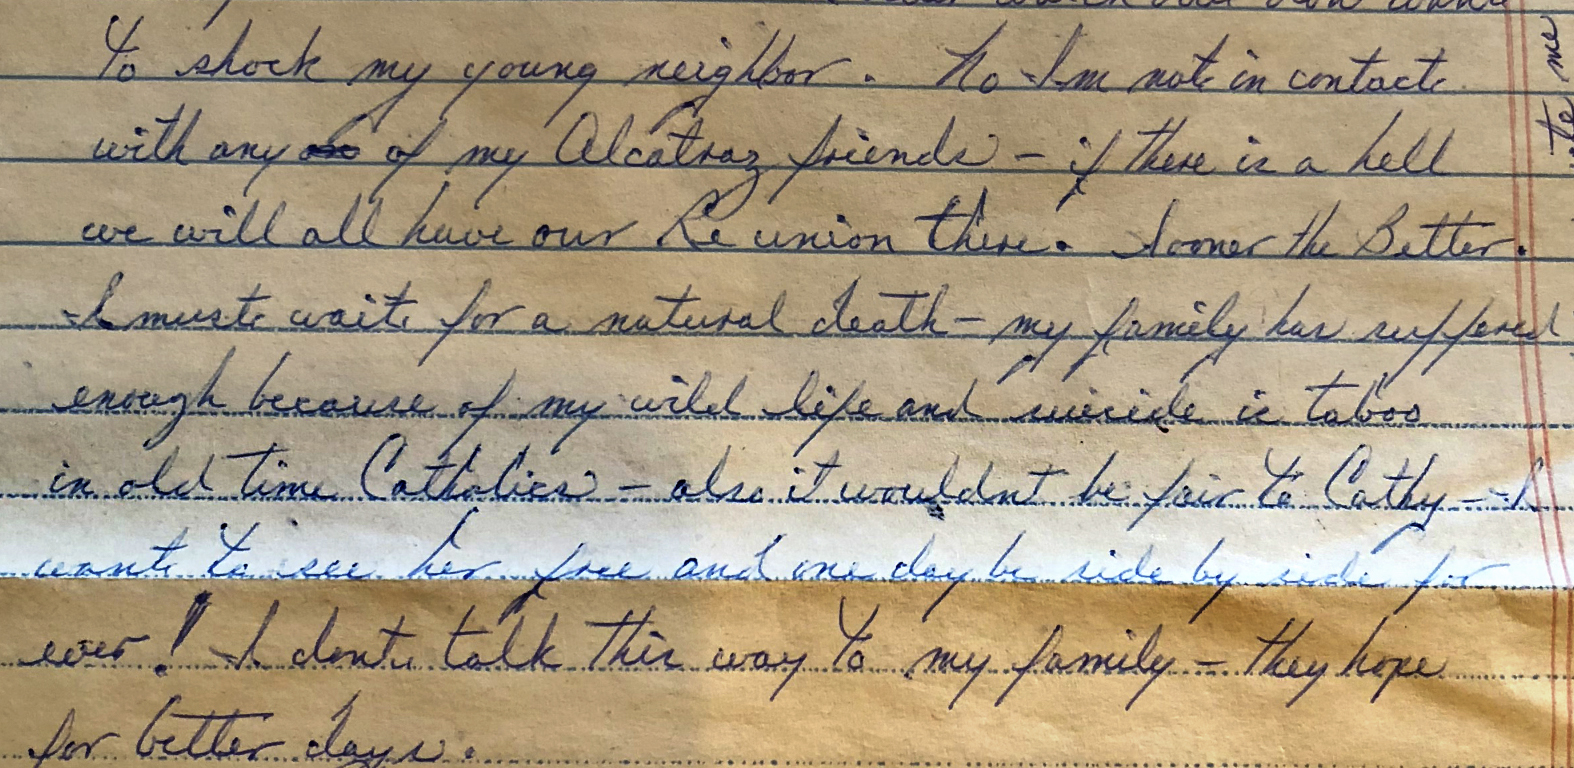 to shock my young neighbor. No I'm not in contact
with any of my Alcatraz friends – if there is a hell
we will all have our Reunion there. Sooner the Better.
I must wait for a natural death – my family has suffered
enough because of my wild life and suicide is taboo
in old time Catholics – also it wouldnt be fair to Cathy – I
want to see her free and one day be side by side for
ever! I dont talk this way to my family – they hope
for better days.
me